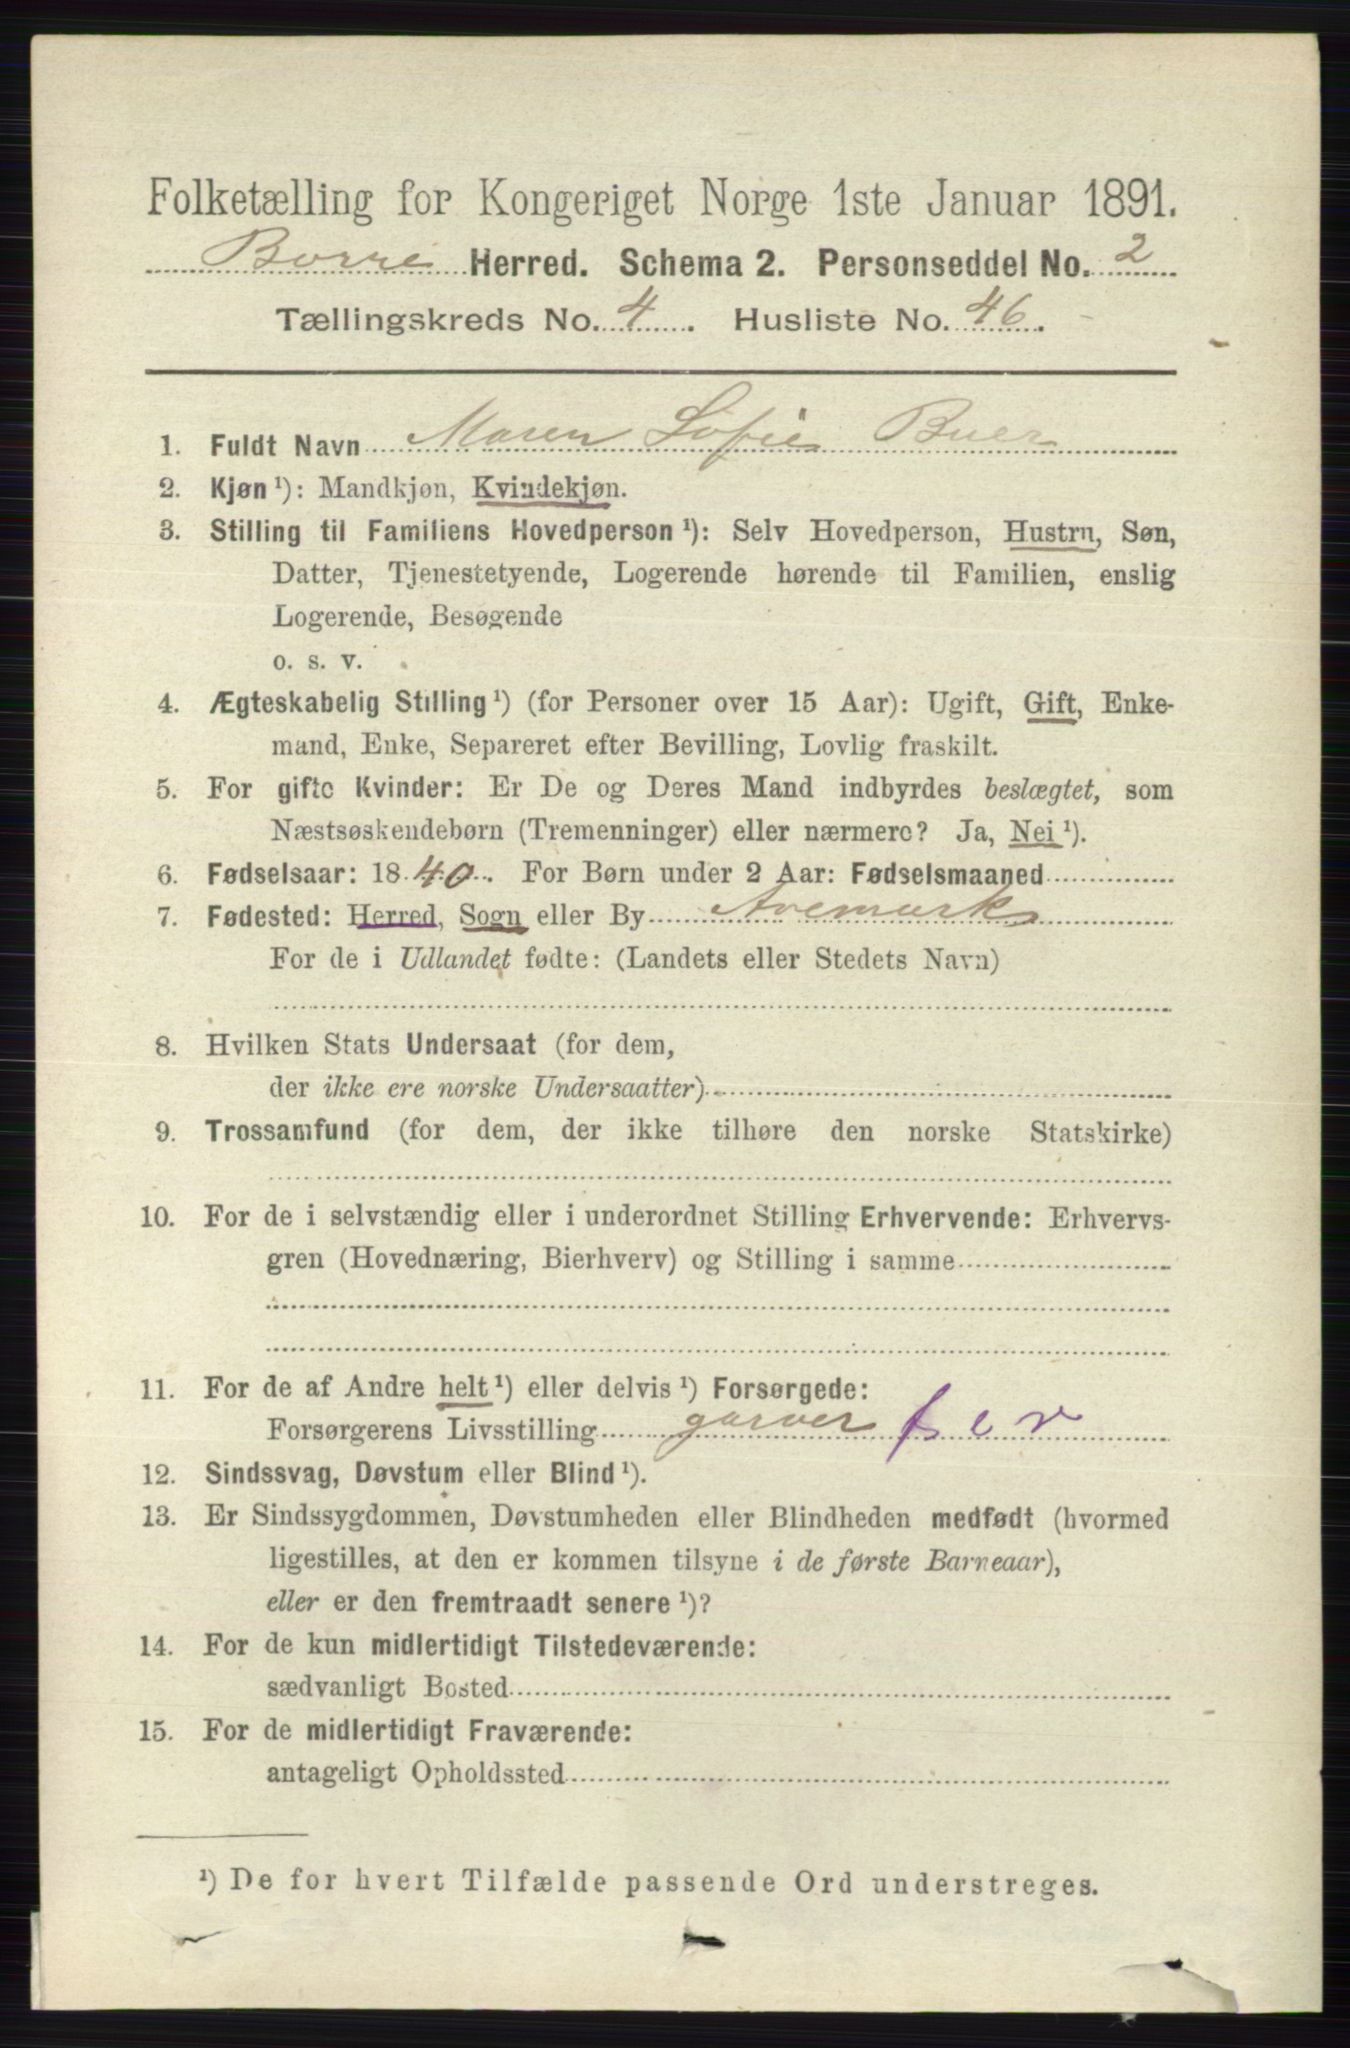 Folketælling for Kongeriget Norge 1ste Januar 1891.
Borre Herred. Schema 2. Personseddel No. 2
Tællingskreds No. 4. Husliste No. 46.
1. Fuldt Navn Maren Sofie Buer
2. Kjøn ¹): Mandkjøn, Kvindekjøn.
3. Stilling til Familiens Hovedperson ¹): Selv Hovedperson, Hustru, Søn,
Datter, Tjenestetyende, Logerende hørende til Familien, enslig
Logerende, Besøgende
o. s. v.
4. Ægteskabelig Stilling ¹) (for Personer over 15 Aar): Ugift, Gift, Enke-
mand, Enke, Separeret efter Bevilling, Lovlig fraskilt.
5. For gifte Kvinder: Er De og Deres Mand indbyrdes beslægtet, som
Næstsøskendebørn (Tremenninger) eller nærmere? Ja, Nei ¹).
6. Fødselsaar: 1840. For Børn under 2 Aar: Fødselsmaaned
7. Fødested: Herred, Sogn eller By Aremark
For de i Udlandet fødte: (Landets eller Stedets Navn)
8. Hvilken Stats Undersaat (for dem,
der ikke ere norske Undersaatter)
9. Trossamfund (for dem, der ikke tilhøre den norske Statskirke)
10. For de i selvstændig eller i underordnet Stilling Erhvervende: Erhvervs-
gren (Hovednæring, Bierhverv) og Stilling i samme
11. For de af Andre helt ¹) eller delvis ¹) Forsørgede:
Forsørgerens Livsstilling garver
12. Sindssvag, Døvstum eller Blind ¹).
13. Er Sindssygdommen, Døvstumheden eller Blindheden medfødt (hvormed
ligestilles, at den er kommen tilsyne i de første Barneaar),
eller er den fremtraadt senere ¹)?
14. For de kun midlertidigt Tilstedeværende:
sædvanligt Bosted
15. For de midlertidigt Fraværende:
antageligt Opholdssted
¹) De for hvert Tilfælde passende Ord understreges.